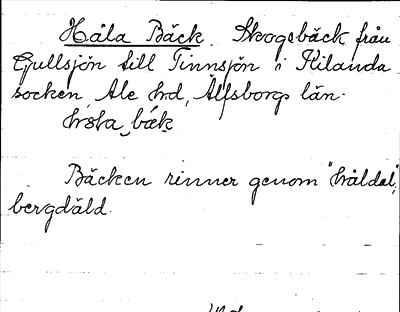 Håla Bäck. Skogsbäck från
Gullsjön till Tinnsjön i Kilanda
socken, Ale hd, Älfsborgs län.
hola bæk
Bäcken rinner genom "håldal",
bergdäld.